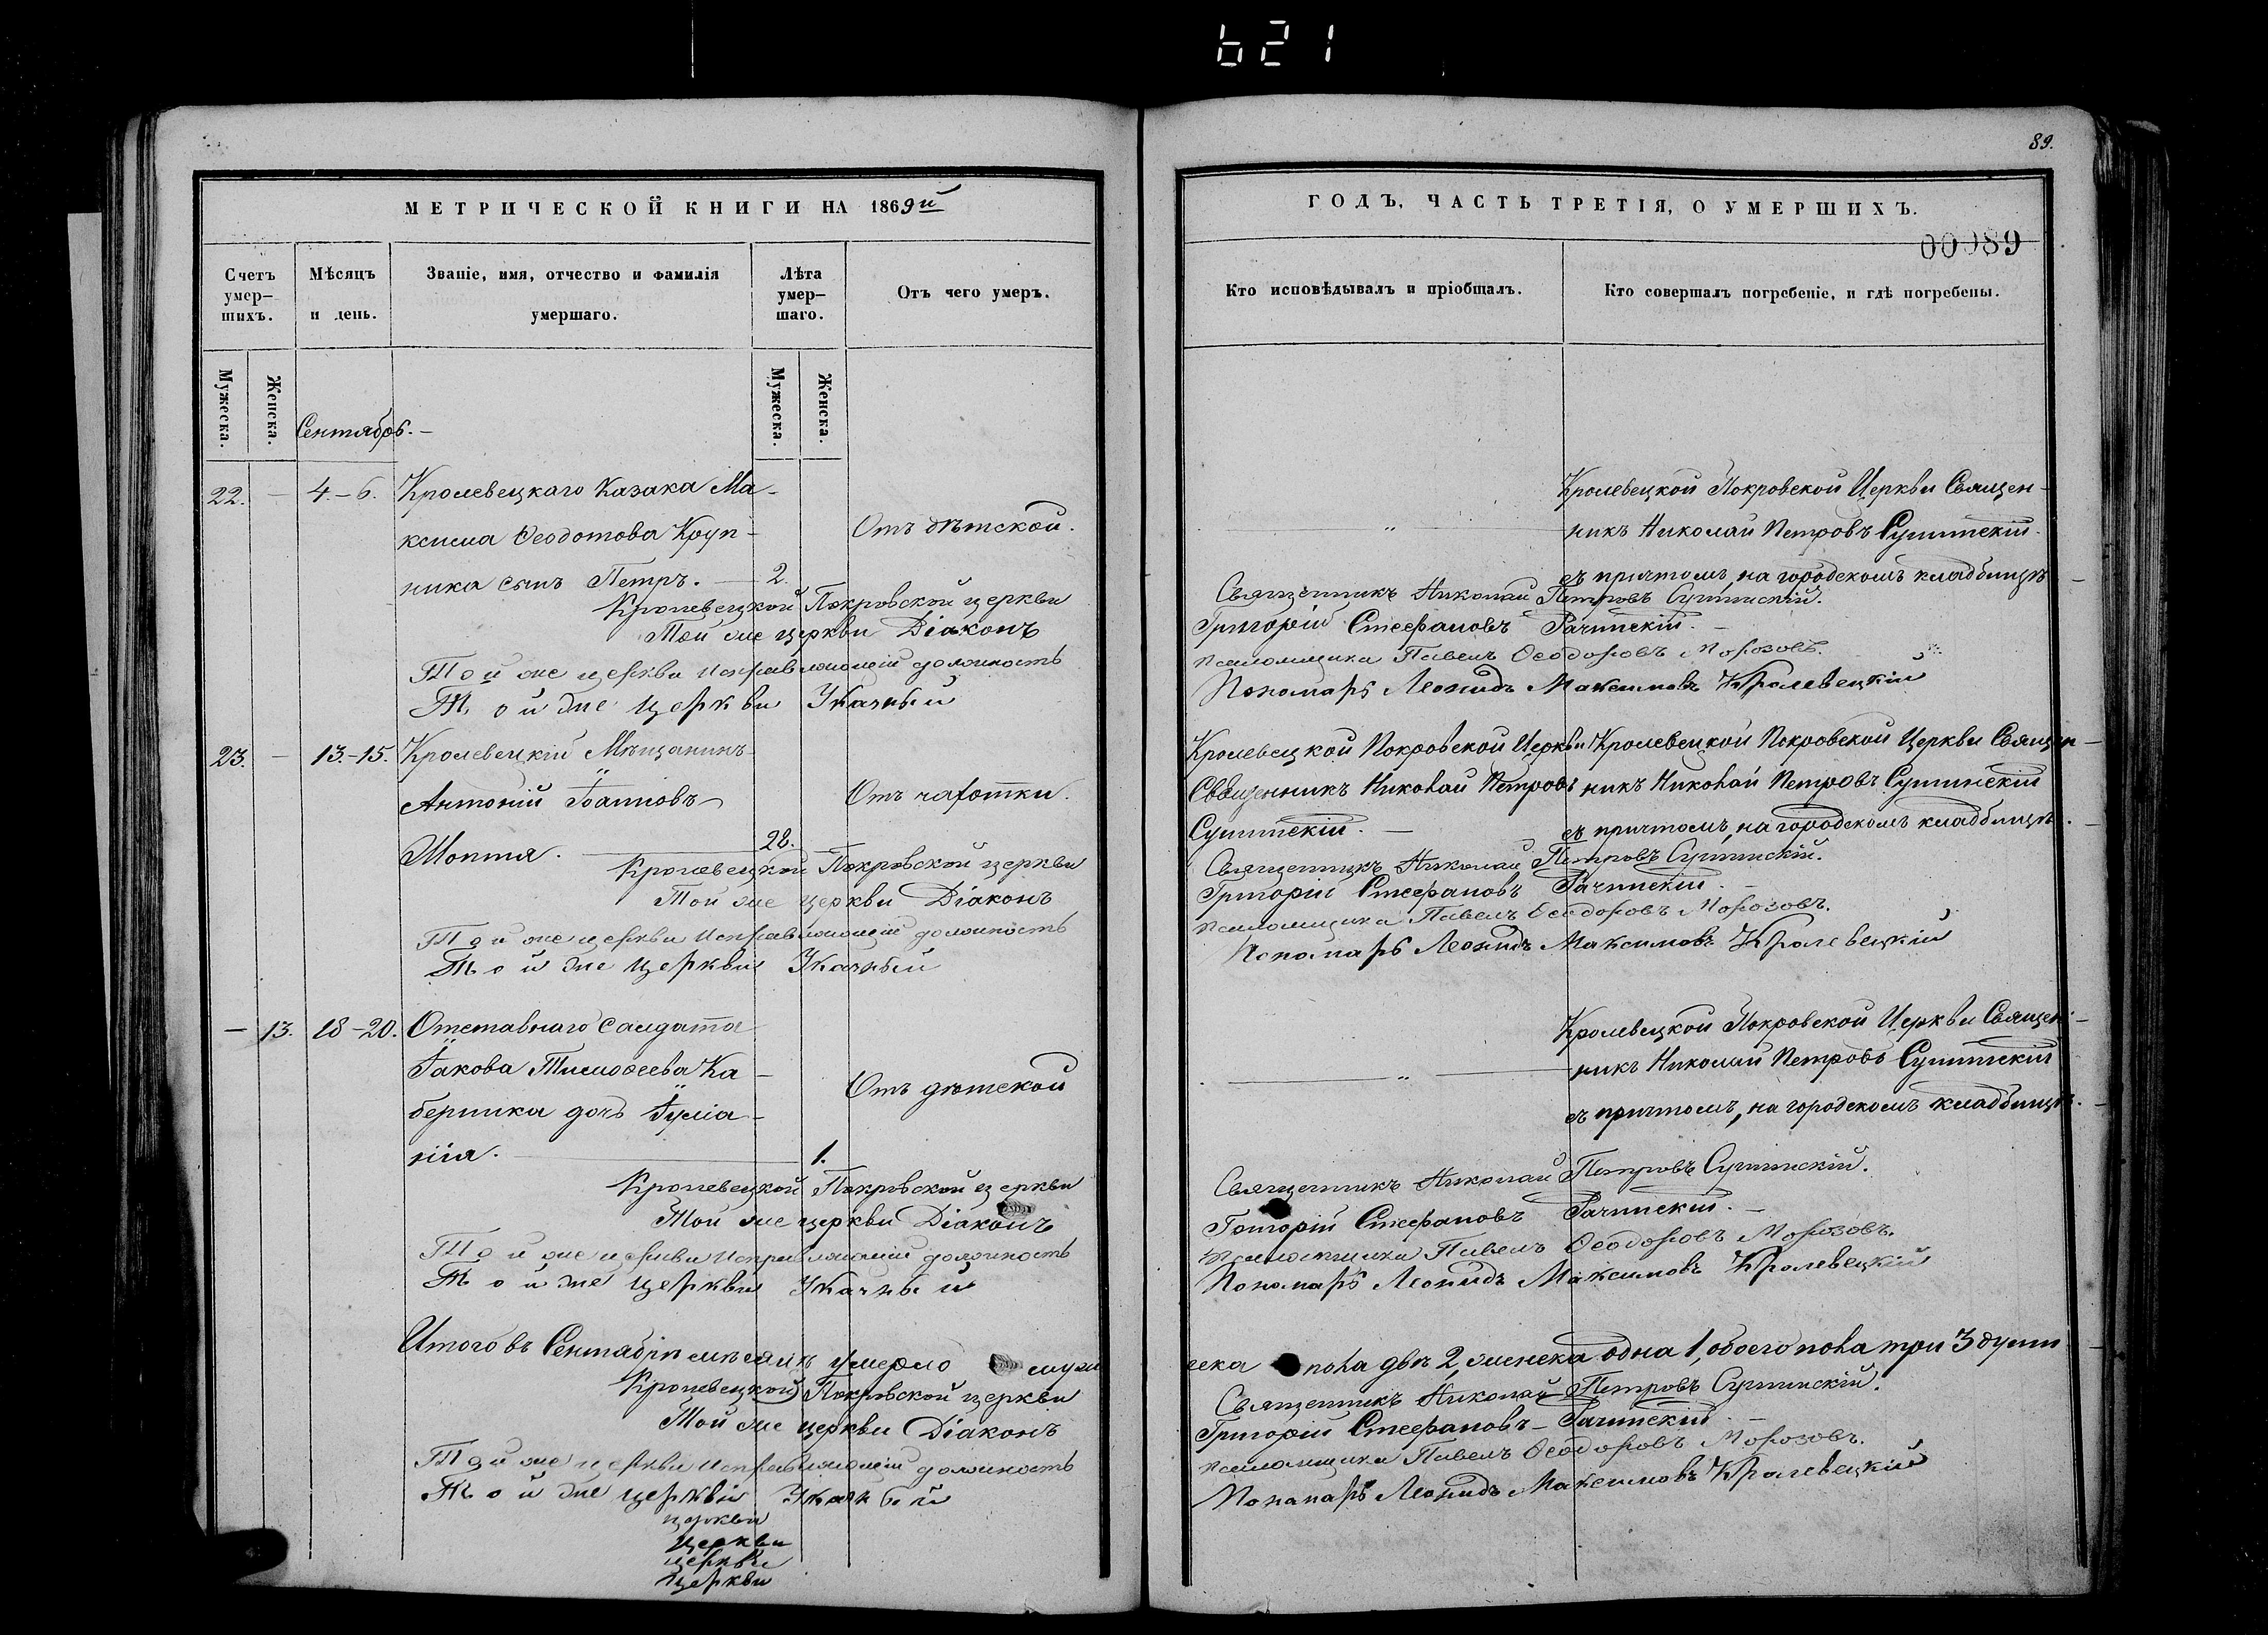 621
МЕТРИЧЕСКОЙ КНИГИ НА 1869й
Счетъ умер-шихъ.
Мѣсяцъ и день.
Званіе, имя, отчество и фамилія умершаго.
Лѣта умер-шаго.
Отъ чего умеръ.
Мужеска.
Женска.
Мужеска.
Женска.
Сентябрь.-
22. - 4.-6. Кролевецкаго Казака Ма-
ксима Ѳеодотова Круп-
Отъ дѣтской.
ника сынъ Петръ. — 2.
Кролевецкой Покровской церкви
Той же церкви Діаконъ
Той же церкви Исправляющій должность
Той же церкви Указный
23. - 13.-15. Кролевецкій Мѣщанинъ
Антоній Іоанновъ
Отъ чахотки.
28.
Кролевецкой Покровской церкви
Той же церкви Діаконъ
Той же церкви Исправляющій должность
Той же церкви Указный
- 13. 18-20. Отставнаго Салдата
Іакова Тимоѳеева Ка-
Отъ дѣтской
дочь Іуліа-
нія. — 1.
Кролевецкой Покровской церкви
Той же церкви Діаконъ
Той же церкви Исправляющій должность
Той же церкви Указный
Итого въ Сентябрѣ мѣсяцѣ умерло муж
Кролевецкой Покровской церкви
Той же церкви Діаконъ
Той же церкви Исправляющій должность
Той же церкви Указный
церкви
церкви
церкви
церкви
89.
ГОДЪ, ЧАСТЬ ТРЕТІЯ, О УМЕРШИХЪ.
00089
Кто исповѣдывалъ и пріобщалъ.
Кто совершалъ погребеніе, и гдѣ погребены.
Кролевецкой Покровской Церкви Священ-
никъ Николай Петровъ
съ причтомъ, на городскомъ кладбищѣ
Священникъ Николай Петровъ
Григорій Стефановъ Рачинскій.
псаломщика Павелъ Ѳеодоровъ Морозовъ.
Пономарь Леонидъ Максимовъ Кролевецкій
Кролевецкой Покровской Церкви
Священникъ Николай Петровъ
Кролевецкой Покровской Церкви Священ-
никъ Николай Петровъ
съ причтомъ, на городскомъ кладбищѣ.
Священникъ Николай Петровъ
Григорій Стефановъ Рачинскій.
псаломщика Павелъ Ѳеодоровъ Морозовъ.
Пономарь Леонидъ Максимовъ Кролевецкій
Кролевецкой Покровской Церкви Священ-
никъ Николай Петровъ
съ причтомъ, на городскомъ кладбищѣ.
Священникъ Николай Петровъ
Григорій Стефановъ Рачинскій.
псаломщика Павелъ Ѳеодоровъ Морозовъ.
Пономарь Леонидъ Максимовъ Кролевецкій
еска пола двѣ 2, женска одна 1, обоего пола три 3 души
Священникъ Николай Петровъ
Григорій Стефановъ Рачинскій
псаломщика Павелъ Ѳеодоровъ Морозовъ.
Пономарь Леонидъ Максимовъ Кролевецкій